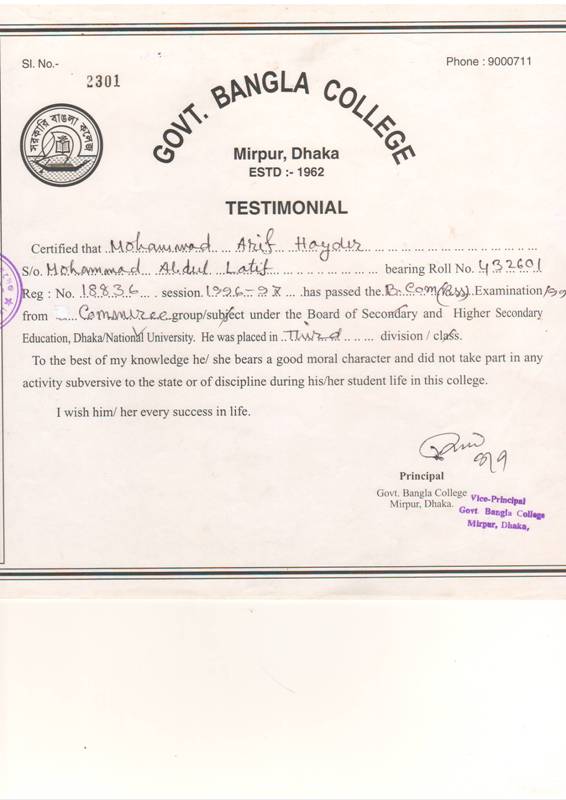 Sl. No.-
2301
Phone : 9000711
GOVT. BANGLA COLLEGE
সরকারি বাঙলা কলেজ
Mirpur, Dhaka
ESTD :- 1962
TESTIMONIAL
Certified that Mohammad Arif Hayder
S/o. Mohammad Abdul Latif bearing Roll No. 432601
Reg : No. 18836 session 1996-97 has passed the B. Com (Pass) Examination
from Commerce group/subject under the Board of Secondary and Higher Secondary
Education, Dhaka/National University. He was placed in Third division / class.
To the best of my knowledge he/ she bears a good moral character and did not take part in any
activity subversive to the state or of discipline during his/her student life in this college.
I wish him/ her every success in life.
Principal
Govt. Bangla College
Mirpur, Dhaka.
Vice-Principal
Govt Bangla College
Mirpur, Dhaka,